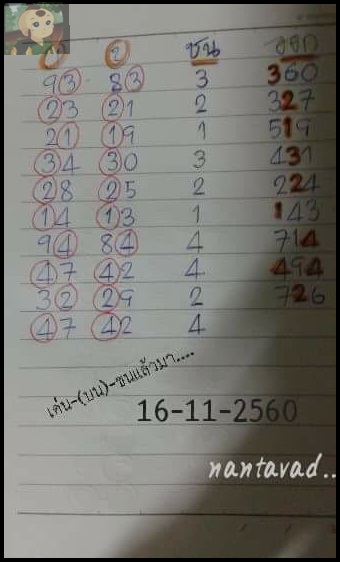 ๑ ๒ ชน ออก
93 83 3 360
23 21 2 327
21 19 1 519
34 30 3 431
28 25 2 224
14 13 1 143
94 84 4 714
47 42 4 494
32 29 2 726
47 42 4
เด่น-(บน)-ชนแล้วมา....
16-11-2560
nantavad..